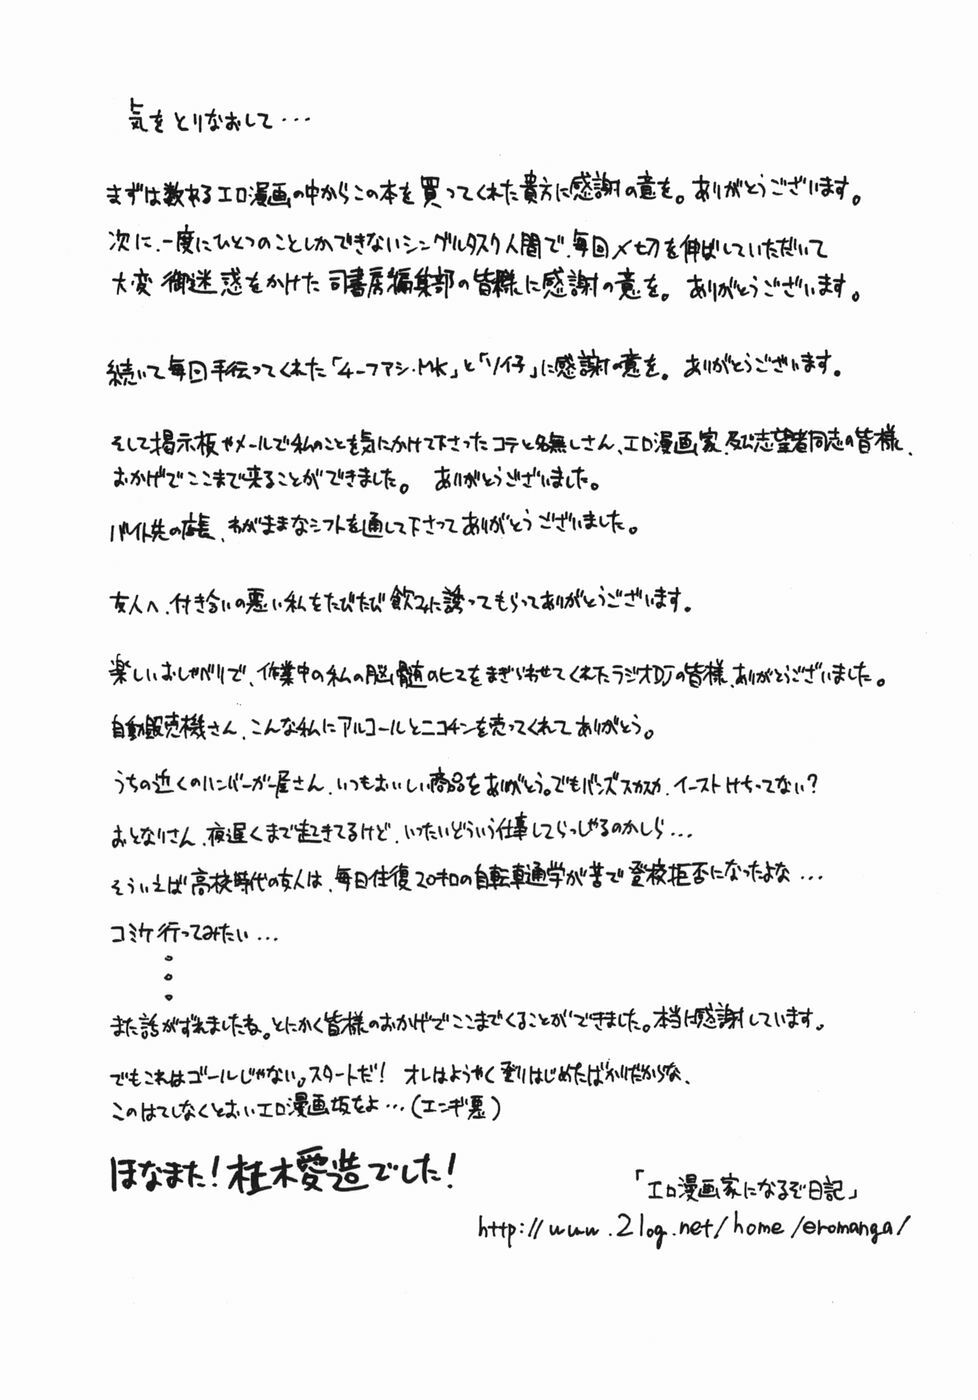 気をとりなおして・・・
まずは数あるエロ漫画の中からこの本を買ってくれた貴方に感謝の意を。ありがとうございます。
次に、一度にひとつのことしかできないシングルタスク人間で、毎回〆切を伸ばしていただいて
大変御迷惑をかけた司書房編集部の皆様に感謝の意を。ありがとうございます。
続いて毎回手伝ってくれた「4-ファシ・MK」と「ソイ子」に感謝の意を。ありがとうございます。
そして掲示板やメールで私のことを気にかけて下さったコテと名無しさん、エロ漫画家、及び志望者同志の皆様、
おかげでここまで来ることができました。ありがとうございました。
バイト先の店長、わがままなシフトを通して下さってありがとうございました。
友人へ、付き合いの悪い私をたびたび飲みに誘ってもらってありがとうございます。
楽しいおしゃべりで、作業中の私の脳髄のヒマをまぎらわせてくれたラジオDJの皆様、ありがとうございました。
自動販売機さん、こんな私にアルコールとニコチンを売ってくれてありがとう。
うちの近くのハンバーガー屋さん、いつもおいしい商品をありがとう。でもバンズスカスカ、イーストけちってない？
おとなりさん、夜遅くまで起きてるけど、いったいどういう仕事してらっしゃるのかしら・・・
そういえば高校時代の友人は、毎日往復20キロの自転車通学が苦で登校拒否になったよな・・・
コミケ行ってみたい・・・
。
。
。
また話がずれましたね。とにかく皆様のおかげでここまでくることができました。本当に感謝しています。
でもこれはゴールじゃない。スタートだ！ オレはようやく登りはじめたばかりだからな、
このはてしなくとおいエロ漫画坂をよ・・・（エンギ悪）
ほなまた！柱木愛造でした！
「エロ漫画家になるぞ日記」
http://www.2log.net/home/eromanga/